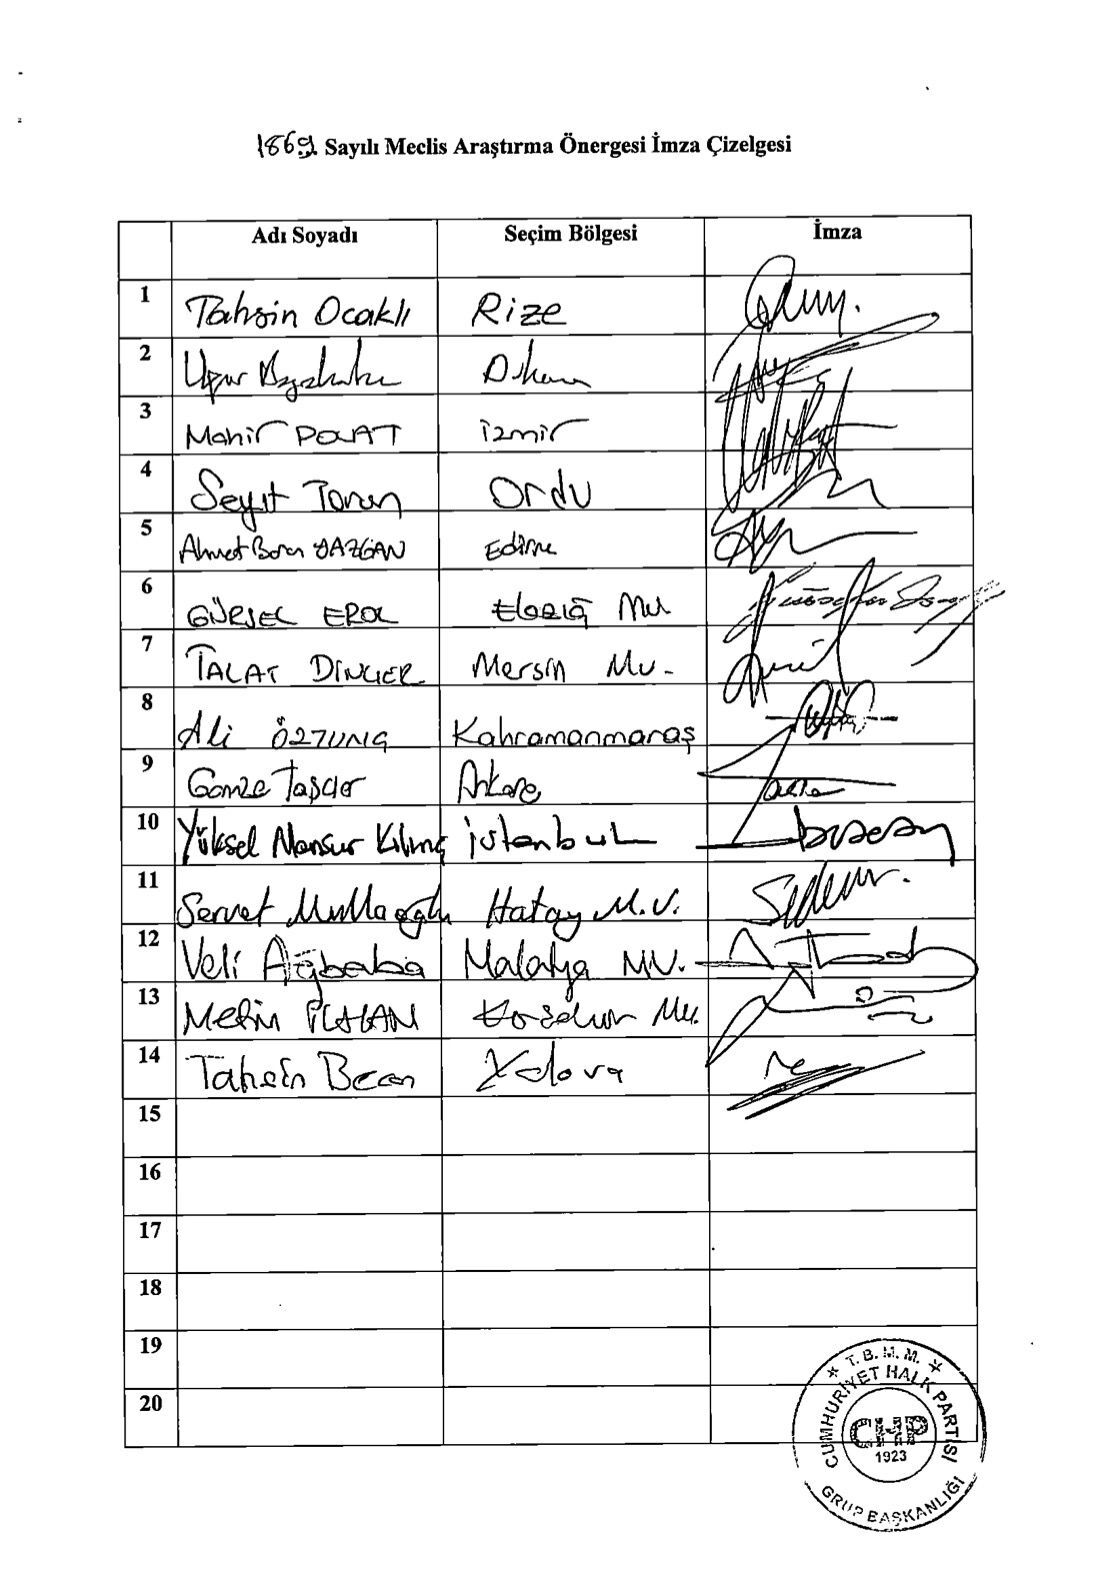 1869. Sayılı Meclis Araştırma Önergesi İmza Çizelgesi
Adı Soyadı Seçim Bölgesi İmza
1 Tahsin Ocaklı Rize
2 Uğur
3 Mahir POLAT İzmir
4 Seyit Torun Ordu
5 Ahmet Baran YAZGAN Edirne
6 GÜRSEL EROL Elazığ Mv.
7 TALAT DİNÇER Mersin Mv.
8 Ali ÖZTUNÇ Kahramanmaraş
9 Gamze Taşcıer Ankara
10 Yüksel Mansur Kılınç İstanbul
11 Servet Mullaoğlu Hatay M.V.
12 Veli Ağbaba Malatya MV.
13 Metin İLHAN Mv.
14 Tahsin Becan Yalova
15
16
17
18
19
20
★ T.B.M.M. ★
CUMHURİYET HALK PARTİSİ
CHP
1923
GRUP BAŞKANLIĞI